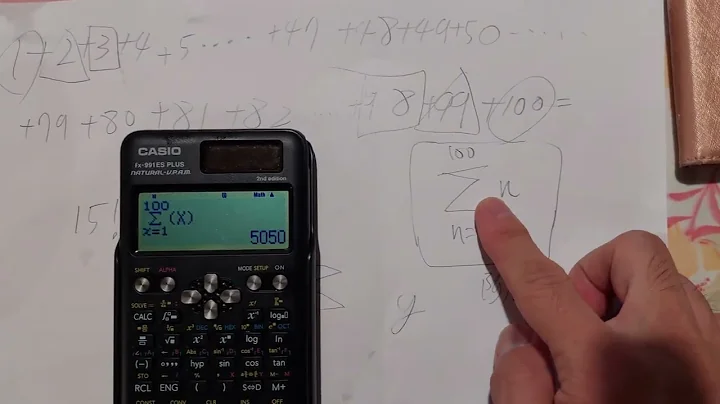 1+2+3+4+5.....+47+48+49+50.....
+79+80+81+82...+98+99+100=
100
Σ n
n=
15!
y
CASIO
fx-991ES PLUS
NATURAL-V.P.A.M.
2nd edition
Math ▲
100
Σ(X)
x=1
5050
SHIFT ALPHA MODE SETUP ON
SOLVE =
CALC x⁻¹ log
x² log ln
(−) hyp sin cos tan
STO
RCL ENG ( ) S⇔D M+
CONST CONV CLR INS OFF